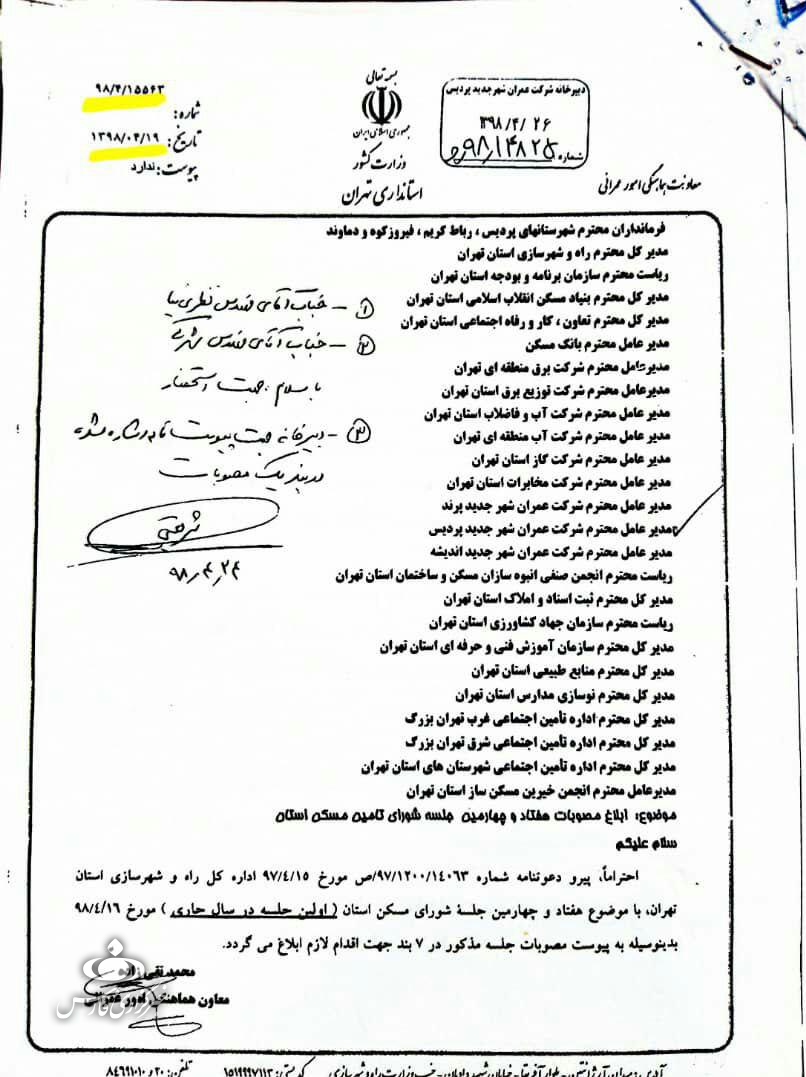 بسمه تعالی
جمهوری اسلامی ایران
وزارت کشور
استانداری تهران
۹۸/۴/۱۵۵۶۳
شماره:
تاریخ: ۱۳۹۸/۰۴/۱۹
پیوست: ندارد
دبیرخانه شرکت عمران شهر جدید پردیس
۱۳۹۸/۴/۲۶
شماره ۹۸/۱۴۸۲۵
معاونت هماهنگی امور عمرانی
فرمانداران محترم شهرستانهای پردیس ، رباط کریم ، فیروزکوه و دماوند
مدیر کل محترم راه و شهرسازی استان تهران
ریاست محترم سازمان برنامه و بودجه استان تهران
مدیر کل محترم بنیاد مسکن انقلاب اسلامی استان تهران
مدیر کل محترم تعاون ، کار و رفاه اجتماعی استان تهران
مدیر عامل محترم بانک مسکن
مدیرعامل محترم شرکت برق منطقه ای تهران
مدیرعامل محترم شرکت توزیع برق استان تهران
مدیر عامل محترم شرکت آب و فاضلاب استان تهران
مدیر عامل محترم شرکت آب منطقه ای تهران
مدیر عامل محترم شرکت گاز استان تهران
مدیر عامل محترم شرکت مخابرات استان تهران
مدیر عامل محترم شرکت عمران شهر جدید پرند
مدیر عامل محترم شرکت عمران شهر جدید پردیس
مدیر عامل محترم شرکت عمران شهر جدید اندیشه
ریاست محترم انجمن صنفی انبوه سازان مسکن و ساختمان استان تهران
مدیر کل محترم ثبت اسناد و املاک استان تهران
ریاست محترم سازمان جهاد کشاورزی استان تهران
مدیر کل محترم سازمان آموزش فنی و حرفه ای استان تهران
مدیر کل محترم منابع طبیعی استان تهران
مدیر کل محترم نوسازی مدارس استان تهران
مدیر کل محترم اداره تأمین اجتماعی غرب تهران بزرگ
مدیر کل محترم اداره تأمین اجتماعی شرق تهران بزرگ
مدیر کل محترم اداره تأمین اجتماعی شهرستان های استان تهران
مدیرعامل محترم انجمن خیرین مسکن ساز استان تهران
۱ – جناب آقای مهندس نظری نیا
۲ – جناب آقای مهندس
با سلام، جهت استحضار
۳ – دبیرخانه جهت پیوست نامه اشاره شده
در بند یک مصوبات
۹۸/۴/۲۴
موضوع: ابلاغ مصوبات هفتاد و چهارمین جلسه شورای تامین مسکن استان
سلام علیکم
احتراماً، پیرو دعوتنامه شماره ۹۷/۱۲۰۰/۱۴۰۶۳/ص مورخ ۹۷/۴/۱۵ اداره کل راه و شهرسازی استان
تهران، با موضوع هفتاد و چهارمین جلسۀ شورای مسکن استان ( اولین جلسه در سال جاری ) مورخ ۹۸/۴/۱۶
بدینوسیله به پیوست مصوبات جلسه مذکور در ۷ بند جهت اقدام لازم ابلاغ می گردد.
محمد تقی زاده
معاون هماهنگی امور عمرانی
خبرگزاری فارس
آدرس: میدان آرژانتین - بلوار آفریقا - خیابان شهید دادمان - جنب وزارت راه و شهرسازی
کد پستی: ۱۵۱۹۹۹۷۱۱۳
تلفن: ۲۰ و ۸۴۶۹۱۰۱۰